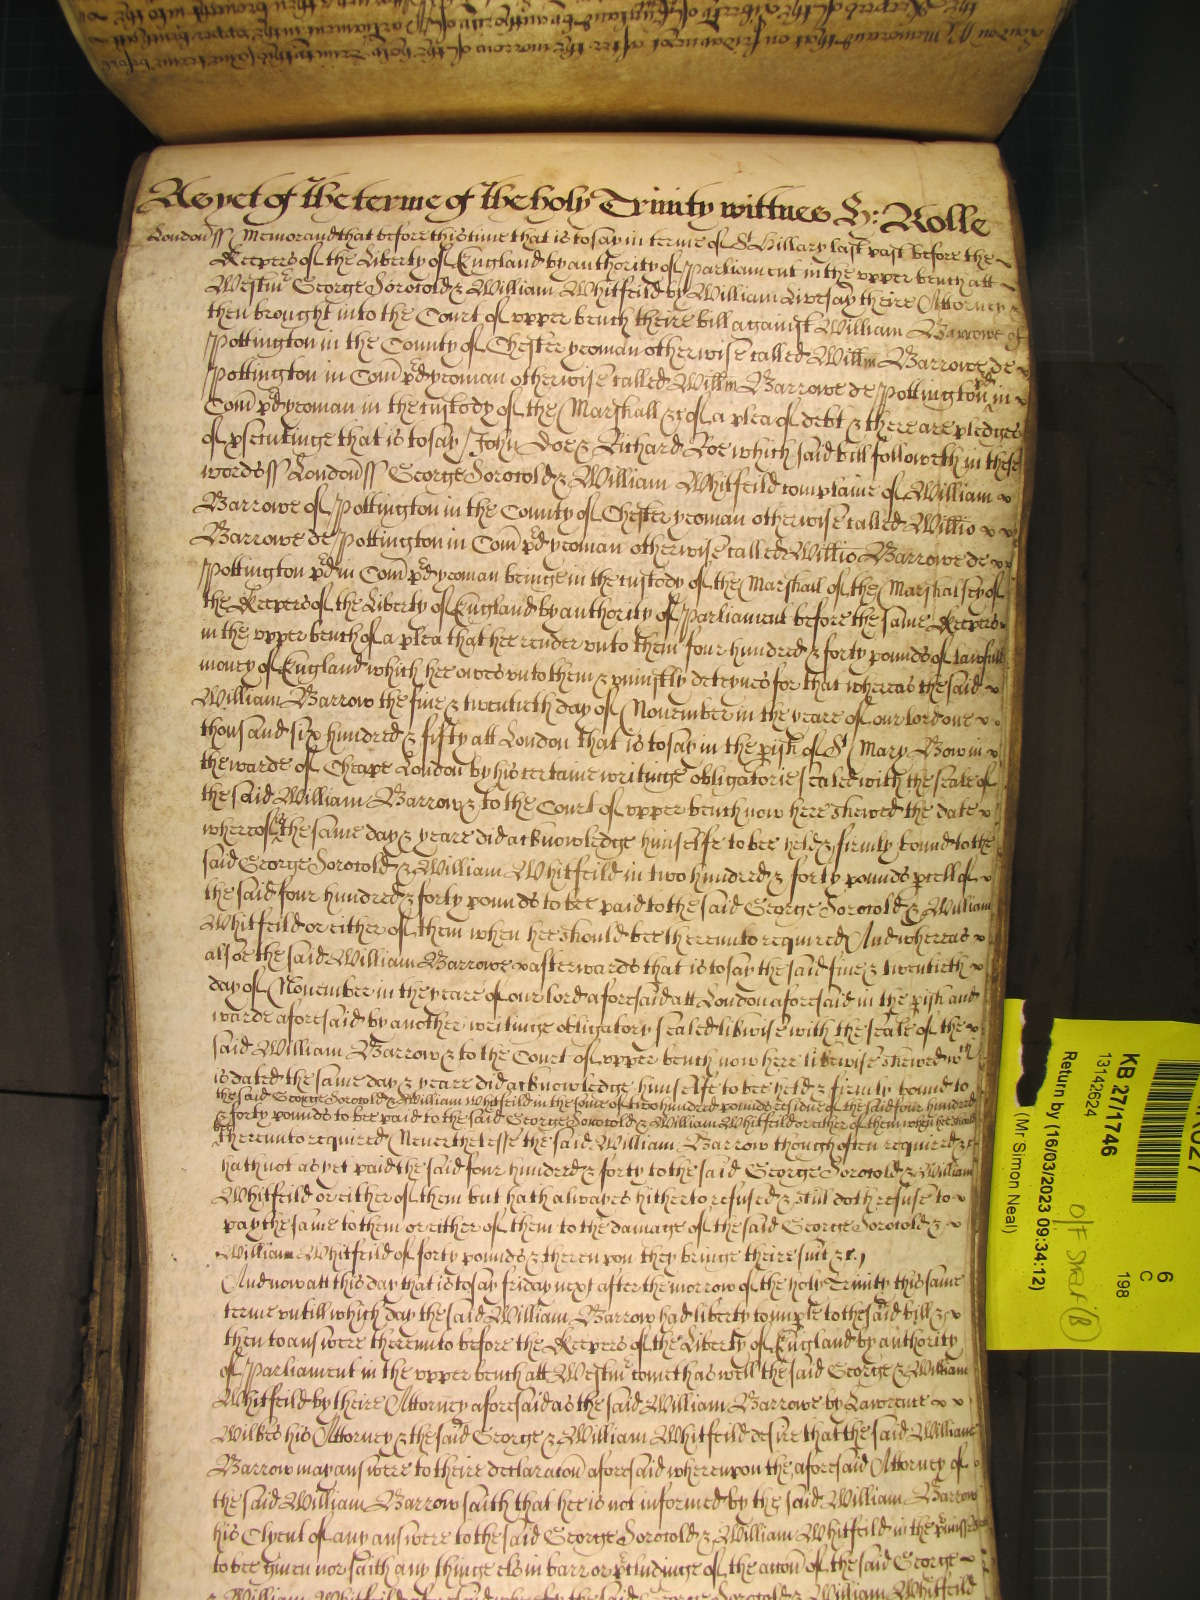 As yet of the terme of the holy Trinity wittnes H: Rolle
London ss Memorand that before this time that is to say in terme of St Hillary last past before the
Keepers of the Liberty of England by authority of Parliament in the upper bench att
Westmr George Sorocold & William Whitfeild by William Livesay theire Attorney
then brought into the Court of upper bench theire bill against William Barrowe of
Pottington in the County of Chester yeoman otherwise called Willm Barrowe de
Pottington in Com pd yeoman otherwise called Willm Barrowe de Pottington pd in
Com pd yeoman in the custody of the Marshall &c of a plea of debt & there are pledges
of psecutinge that is to say John Doe & Richard Roe which said bill followeth in these
words ss London ss George Sorocold & William Whitfeild complaine of William
Barrowe of Pottington in the County of Chester yeoman otherwise called Willio
Barrowe de Pottington in Com pd yeoman otherwise called Willio Barrowe de
Pottington pd in Com pd yeoman beinge in the custody of the Marshall of the Marshalsey of
the Keepers of the Liberty of England by authority of Parliament before the same Keepers
in the upper bench of a plea that hee render unto them four hundred & forty pounds of lawfull
money of England which hee owes unto them & uniustly deteynes for that whereas the said
William Barrow the five & twentieth day of November in the yeare of our lord one
thousand six hundred & fifty att London that is to say in the pish of St Mary Bow in
the warde of Cheape London by his certaine writinge obligatorie sealed with the seale of
the said William Barrow & to the Court of upper bench now here shewed the date
whereof is the same day & yeare did acknowledge himselfe to bee held & firmly bound to the
said George Sorocold & William Whitfeild in two hundred & forty pounds pcell of
the said four hundred & forty pounds to bee paid to the said George Sorocold & William
Whitfeild or either of them when hee should bee thereunto required And whereas
alsoe the said William Barrowe afterwards that is to say the said five & twentieth
day of November in the yeare of our lord aforesaid att London aforesaid in the pish and
warde aforesaid by another writinge obligatory sealed likwise with the seale of the
said William Barrow & to the Court of upper bench now here likewise shewed wch
is dated the same day & yeare did acknowledge himselfe to bee held & firmly bound to
the said George Sorocold & William Whitfeild in the some of two hundred pounds residue of the said four hundred
& forty pounds to bee paid to the said George Sorocold & William Whitfeild or either of them when hee should
bee thereunto required Neverthelesse the said William Barrow though often required &c
hath not as yet paid the said four hundred & forty to the said George Sorocold & William
Whitfeild or either of them but hath alwayes hitherto refused & still doth refuse to
pay the same to them or either of them to the damage of the said George Sorocold &
William Whitfeild of forty pounds & thereupon they bringe theire suit &c.
And now att this day that is to say friday next after the morrow of the holy Trinity this same
terme untill which day the said William Barrow had liberty to imple to the said bill &
then to answere thereunto before the Keepers of the Liberty of England by authority
of Parliament in the upper bench att Westmr cometh aswell the said George & William
Whitfeild by theire Attorney aforesaid as the said William Barrowe by Lawrence
Wilkes his Attorney & the said George & William Whitfeild desire that the said William
Barrow may answere to theire declaracon aforesaid whereupon the aforesaid Attorney of
the said William Barrow saith that hee is not informed by the said William Barrow
his Clyent of any answere to the said George Sorocold & William Whitfeild in the pmisses
to bee given nor saith any thinge els in barr or pcludinge of the accon of the said George
& William Whitfeild by the said George Sorocold & William Whitfeild
KB 27/1746
13142624
Return by (16/03/2023 09:34:12)
(Mr Simon Neal)
6
C
198